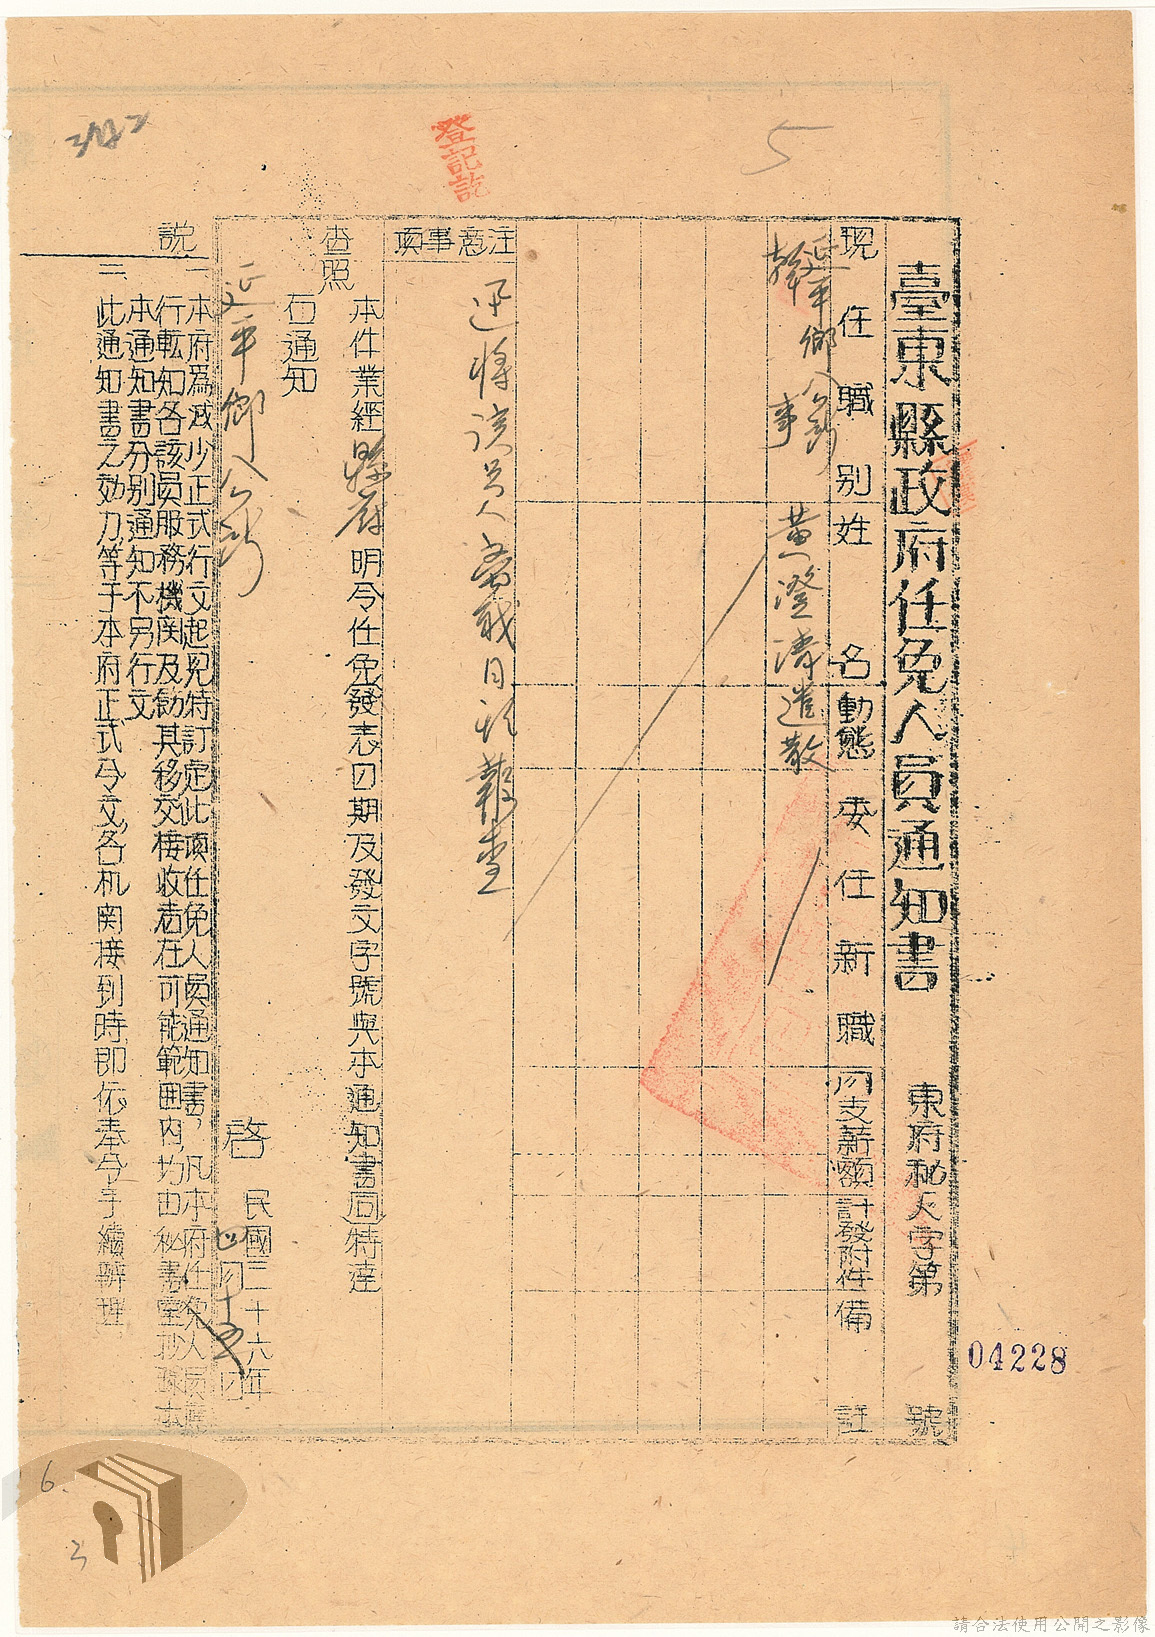 臺東縣政府任免人員通知書
東府秘人字第
號
04228
現任職別
姓名
動態
委任新職
月支薪額
計發附件
備註
延平鄉公所
幹事
黃澄濤
遣散
注意事項
迅將該員人離職日期報查
本件業經縣府明令任免發表日期及發文字號與本通知書同特達
查照
右通知
延平鄉公所
啓
民國三十六年
四月十
日
說
一 本府為減少正式行文起見特訂定此項任免人員通知書，凡本府任免人員應
行転知各該員服務機関及飭其移交接收者在可能範囲內，均由秘書室抄錄本
本通知書分别通知不另行文
二 此通知書之効力，等于本府正式令文，各机関接到時即依奉令手續辦理
登記訖
5
6.
3
請合法使用公開之影像